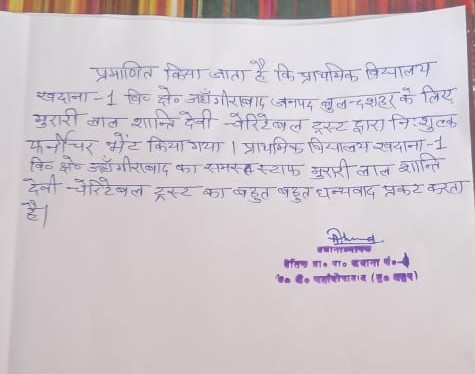 प्रमाणित किया जाता है कि प्राथमिक विद्यालय
खदाना-1 वि० क्षे० जहाँगीराबाद जनपद बुलन्दशहर के लिए
मुरारी लाल शान्ति देवी चैरिटेबल ट्रस्ट द्वारा निःशुल्क
फर्नीचर भेंट किया गया। प्राथमिक विद्यालय खदाना-1
वि० क्षे० जहाँगीराबाद का समस्त स्टाफ मुरारी लाल शान्ति
देवी चैरिटेबल ट्रस्ट का बहुत बहुत धन्यवाद प्रकट करता
है।
प्रधानाध्यापक